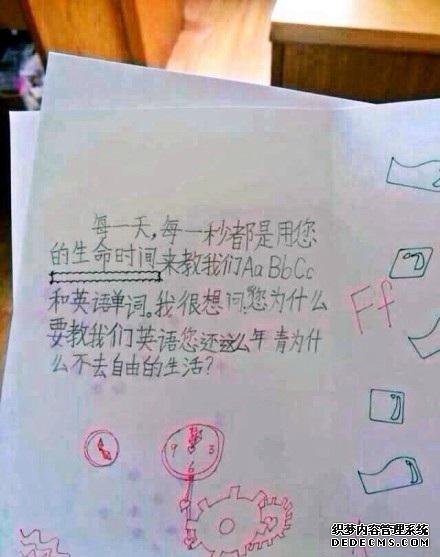 每一天,每一秒都是用您
的生命时间来教我们AaBbCc
和英语单词。我很想问,您为什么
要教我们英语您还这么年青为什
么不去自由的生活?
Ff
9 3
6
织梦内容管理系统
DEDECMS.COM